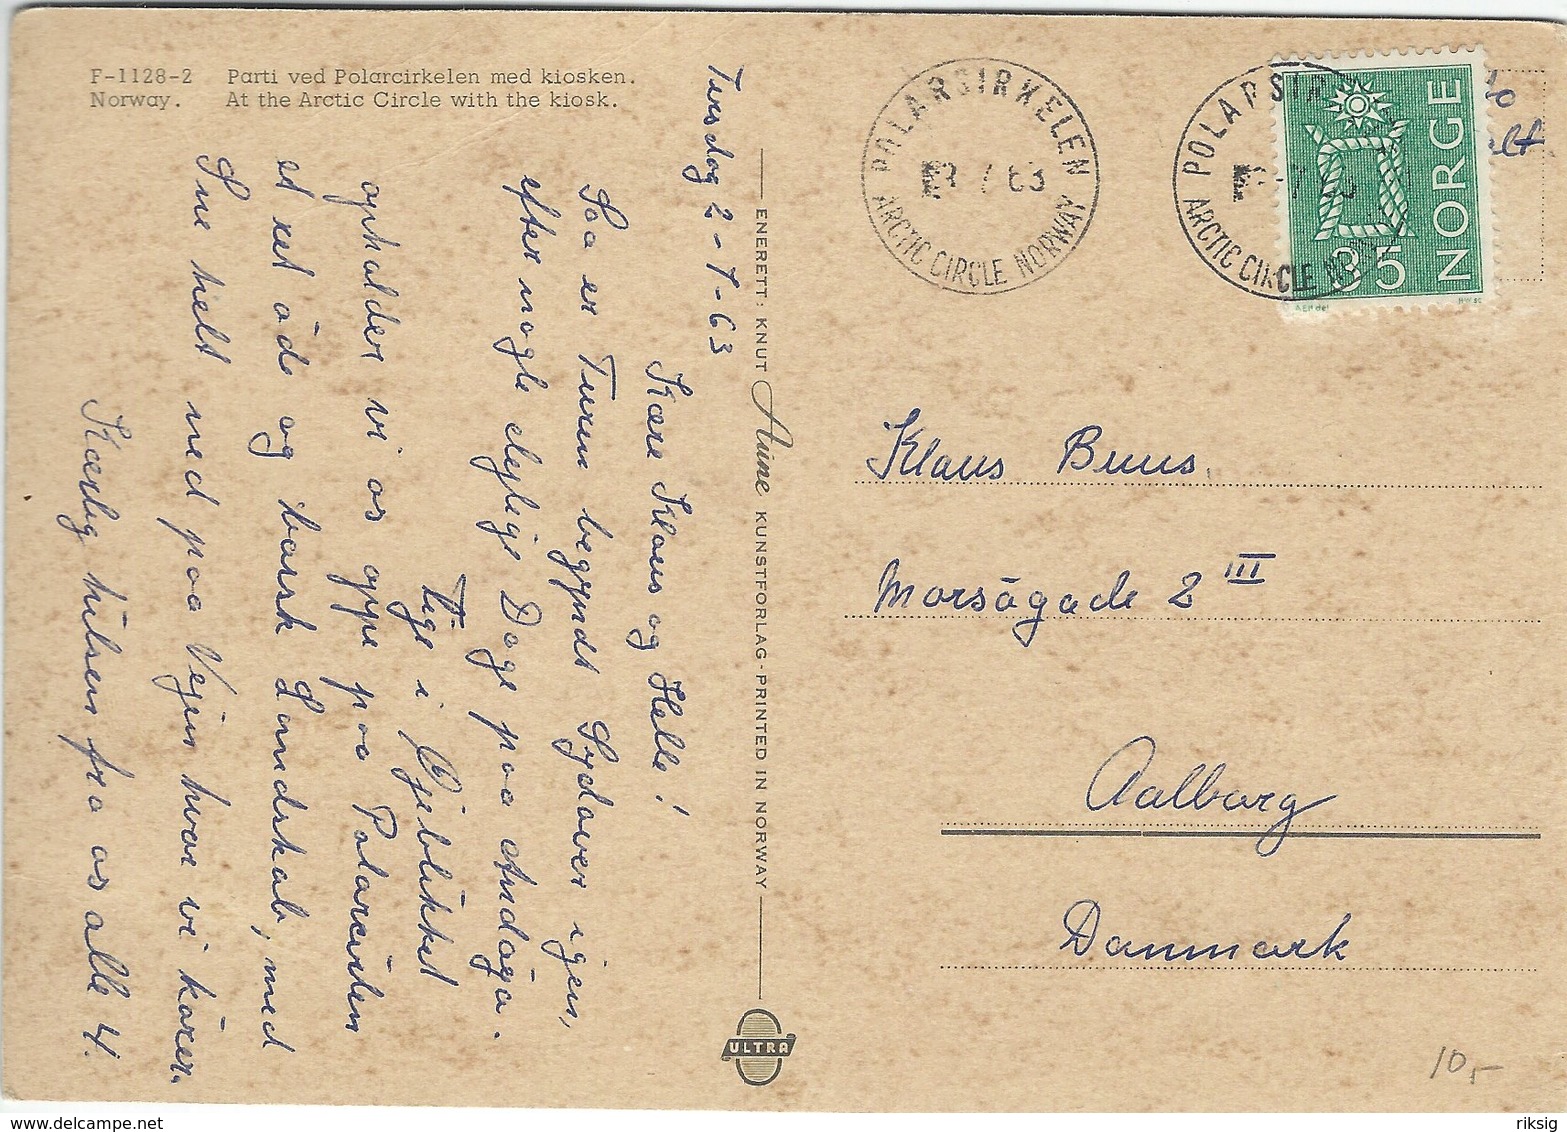 F-1128-2 Parti ved Polarcirkelen med kiosken.
Norway. At the Arctic Circle with the kiosk.
Tirsdag 2-7-63
Kære Klaus og Helle!
Saa er Turen begyndt Sydover igen,
efter nogle dejlige Dage paa Andøja.
Lige i Øjeblikket
opholder vi os oppe paa Polarcirklen
et ret øde og barsk Landskab, med
Sne helt ned paa Vejen hvor vi kører.
Kærlig hilsen fra os alle 4.
ENERETT: KNUT Aune KUNSTFORLAG - PRINTED IN NORWAY
ULTRA
POLARSIRKELEN
7 63
ARCTIC CIRCLE NORWAY
POLARSIR
ARCTIC CIRCLE
NORGE
85
Klaus Buus.
Morsøgade 2 III
Aalborg
Danmark
10,-
riksig